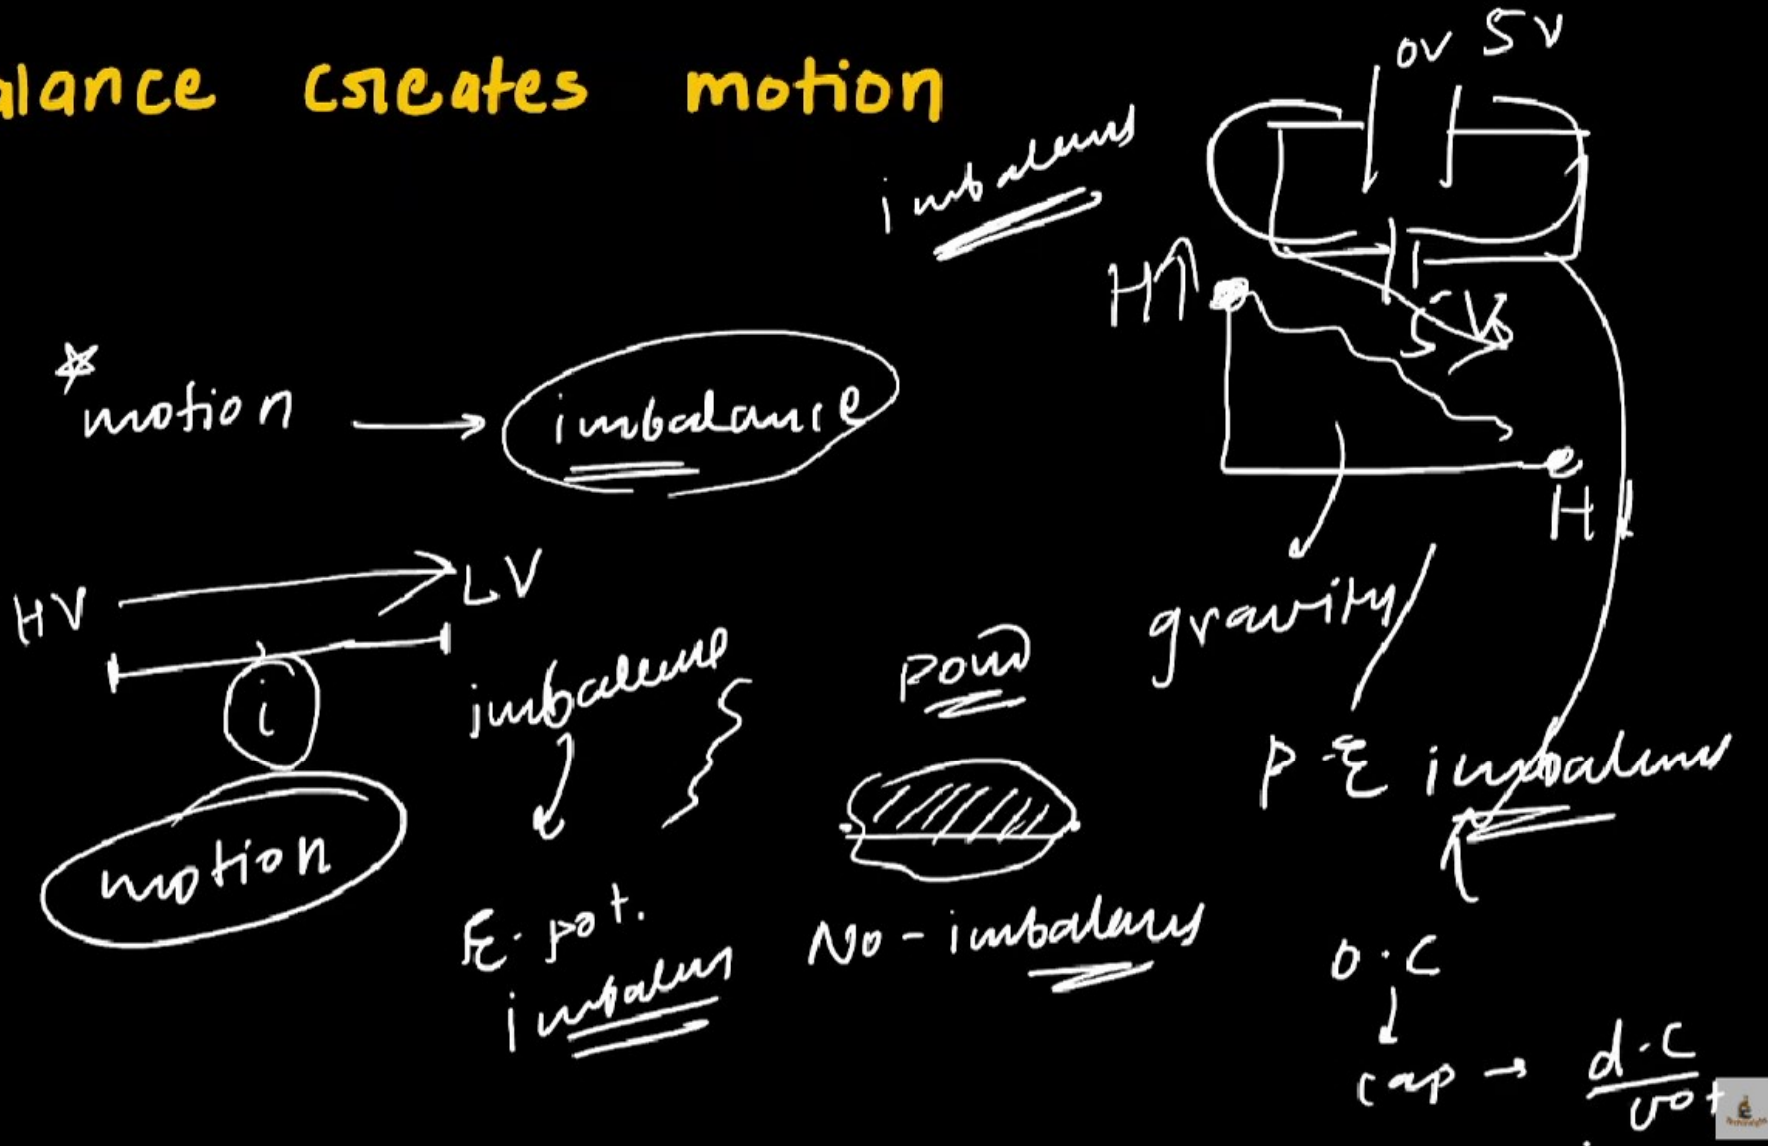 alance creates motion
0V 5V
imbalance
H↑
5V
* motion → imbalance
H
HV → LV
i
motion
imbalance
E. pot.
imbalance
pond
No - imbalance
gravity
P.E imbalance
O.C
↓
cap → d.C
vot